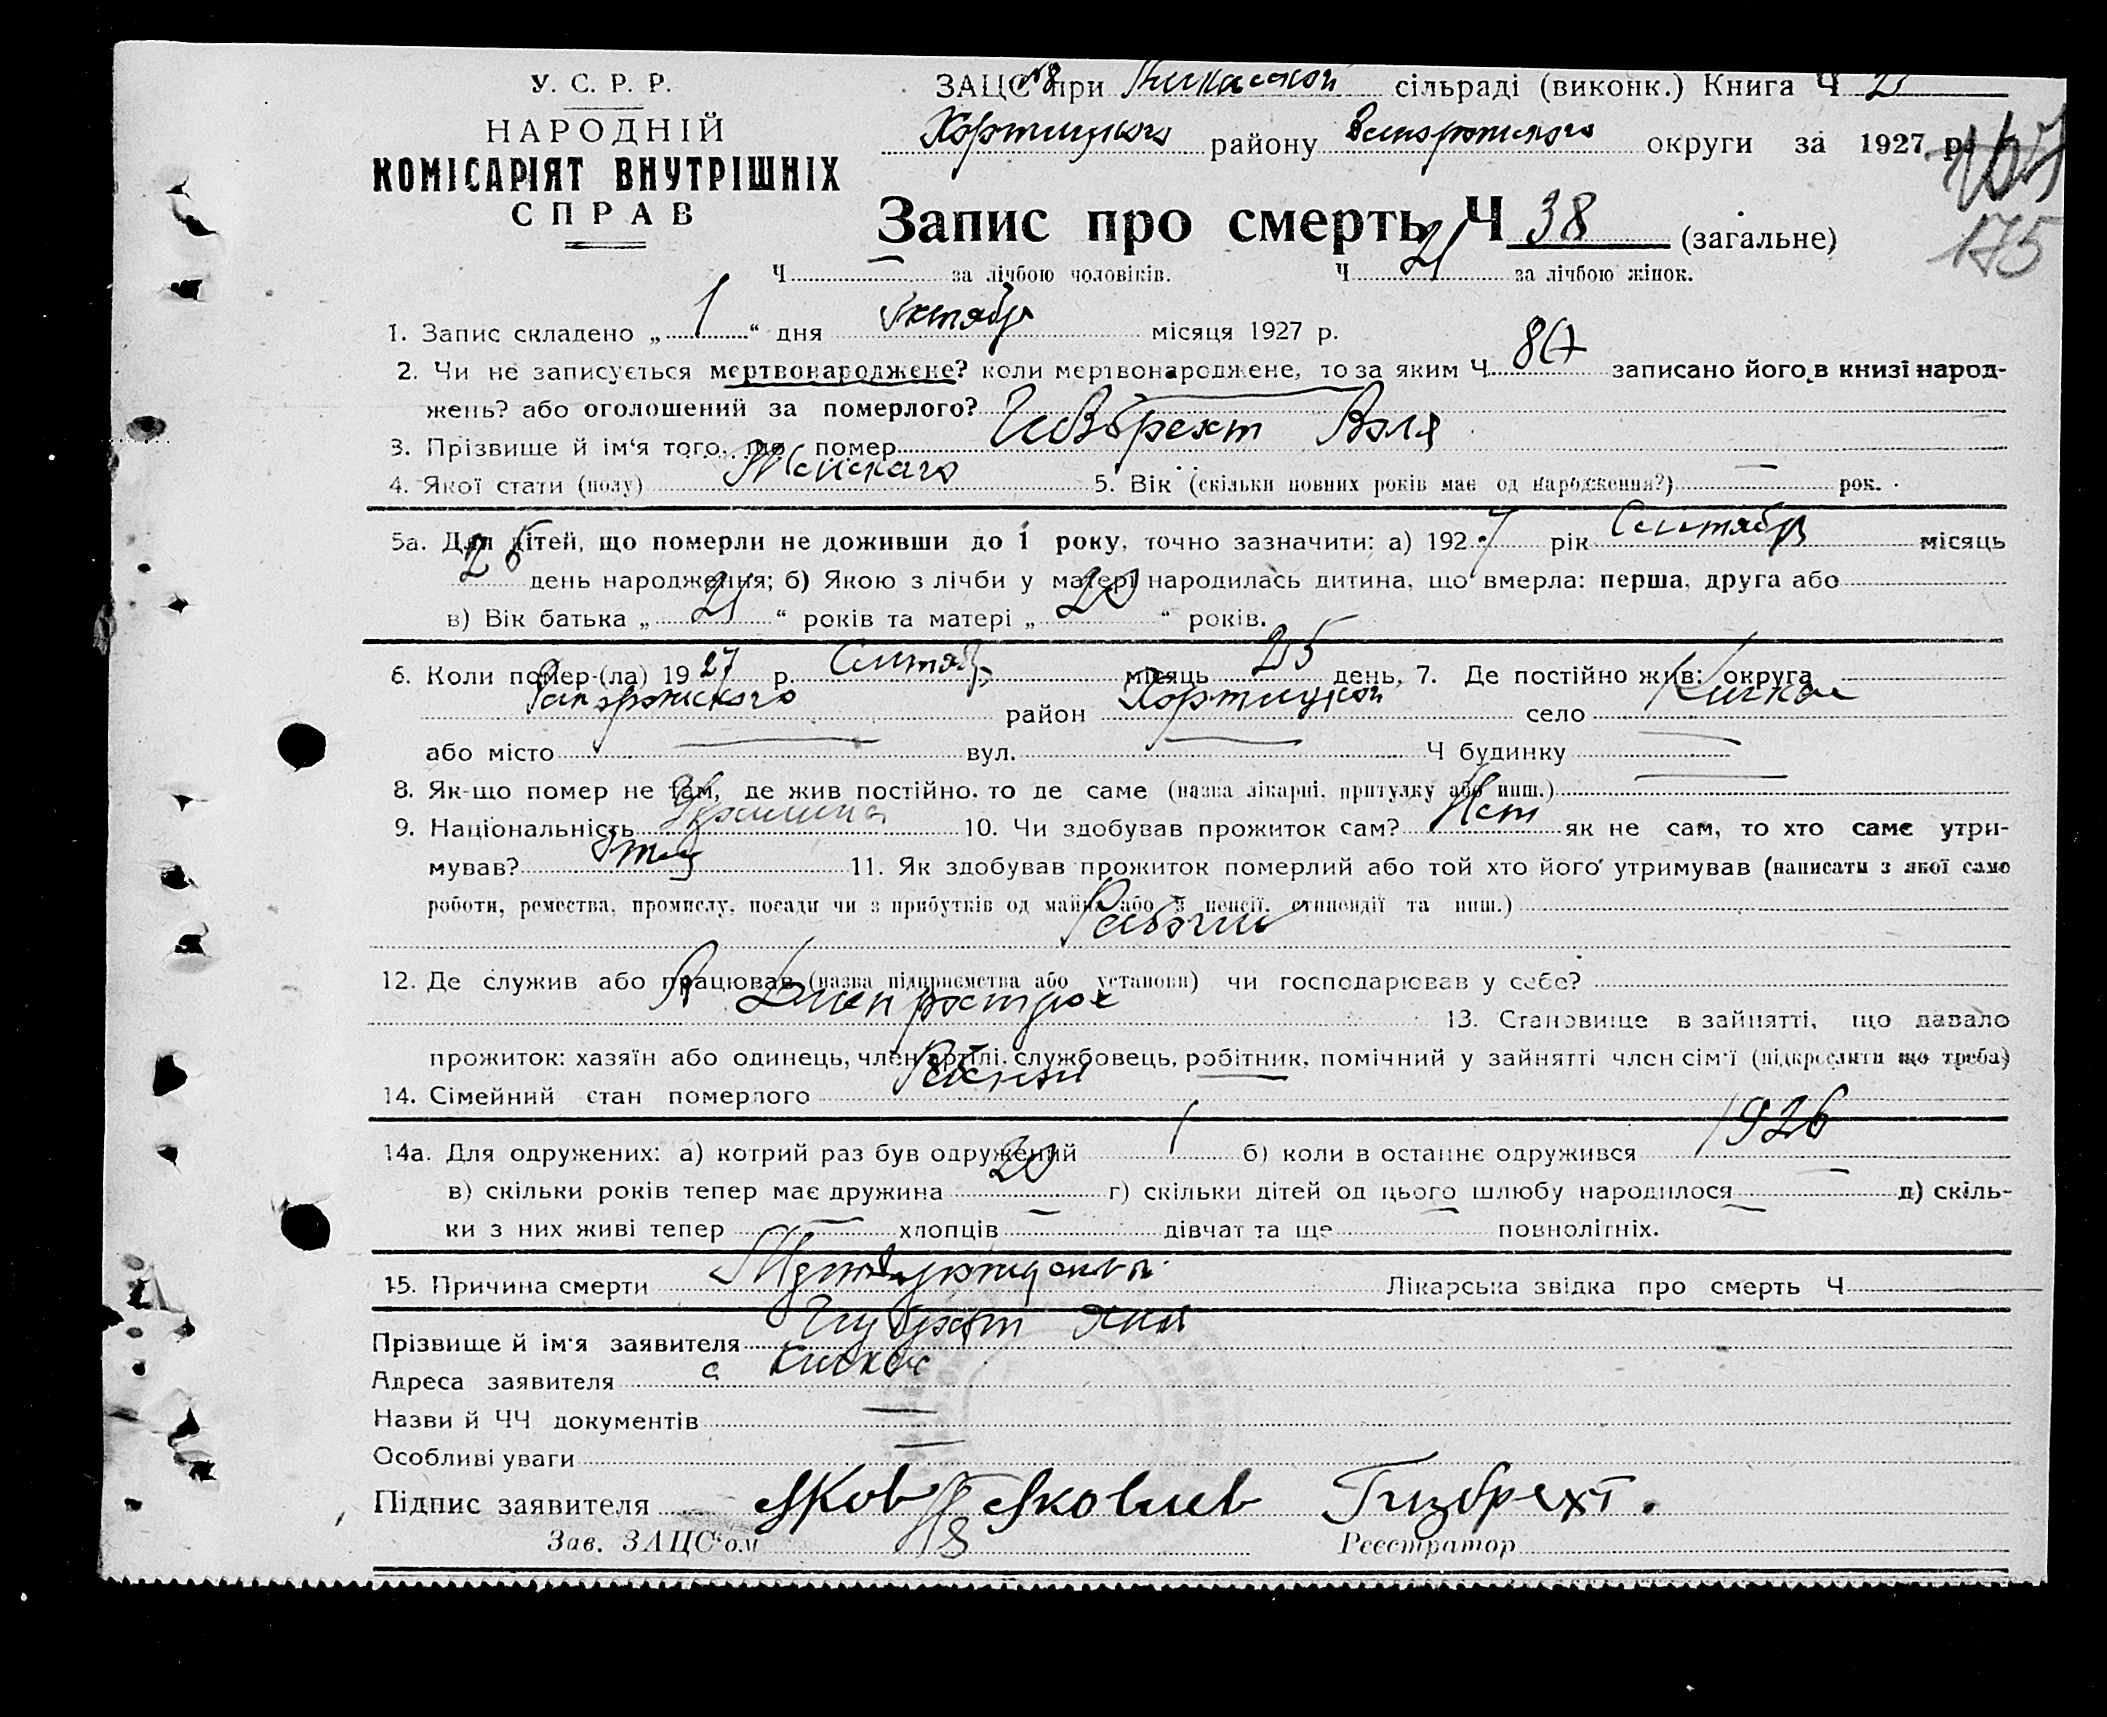 У. С. Р. Р.
НАРОДНІЙ
КОМІСАРІЯТ ВНУТРІШНІХ
СПРАВ
ЗАЦС при Кичкасской сільраді (виконк.) Книга Ч 2
Хортицкого району Запорожского округи за 1927 р.
175
Запис про смерть Ч 38 (загальне)
Ч за лічбою чоловіків. Ч 21 за лічбою жінок.
1. Запис складено „ 1 “ дня Октября місяця 1927 р.
2. Чи не записується мертвонароджене? коли мертвонароджене, то за яким Ч записано його в книзі народ-
жень? або оголошений за померлого?
3. Прізвище й ім‘я того, що помер
4. Якої стати (полу) Женского 5. Вік (скільки повних років має од народження?) — рок.
5а. Для дітей, що померли не доживши до 1 року, точно зазначити: а) 1927 рік Сентябрь місяць
день народження; б) Якою з лічби у матері народилась дитина, що вмерла: перша, друга або
в) Вік батька „ 21 “ років та матері „ 20 “ років.
6. Коли помер-(ла) 1927 р. Сентябрь місяць 25 день, 7. Де постійно жив: округа
Запорожского район Хортицкой село Кичкас
або місто — вул. — Ч будинку —
8. Як-що помер не там, де жив постійно, то де саме (назва лікарні, притулку або инш.) —
9. Національність 10. Чи здобував прожиток сам? Нет як не сам, то хто саме утри-
мував? Отец 11. Як здобував прожиток померлий або той хто його утримував (написати з якої само
роботи, ремества, промислу, посади чи з прибутків од майна або з пенсії, стипендії та инш.)
Рабочий
12. Де служив або працював (назва підприємства або установи) чи господарював у себе?
Днепрострое 13. Становище в зайнятті, що давало
прожиток: хазяїн або одинець, член артілі, службовець, робітник, помічний у зайнятті член сім‘ї (підкреслити що треба)
14. Сімейний стан померлого
14а. Для одружених: а) котрий раз був одружений 1 б) коли в останнє одружився 1926
в) скільки років тепер має дружина 20 г) скільки дітей од цього шлюбу народилося — д) скіль-
ки з них живі тепер — хлопців — дівчат та ще — повнолітніх.
15. Причина смерти Лікарська звідка про смерть Ч —
Прізвище й ім‘я заявителя
Адреса заявителя с Кичкас
Назви й ЧЧ документів —
Особливі уваги —
Підпис заявителя Яков Яковлев Гизбрехт.
Зав. ЗАЦС‘ом Реєстратор